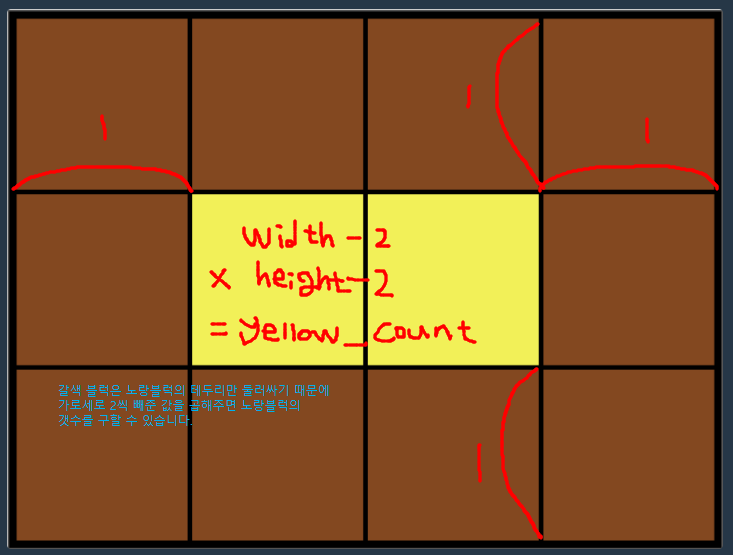 1
1
1
width - 2
x height - 2
= yellow_count
갈색 블럭은 노랑블럭의 테두리만 둘러싸기 때문에
가로세로 2씩 빼준 값을 곱해주면 노랑블럭의
갯수를 구할 수 있습니다.
1